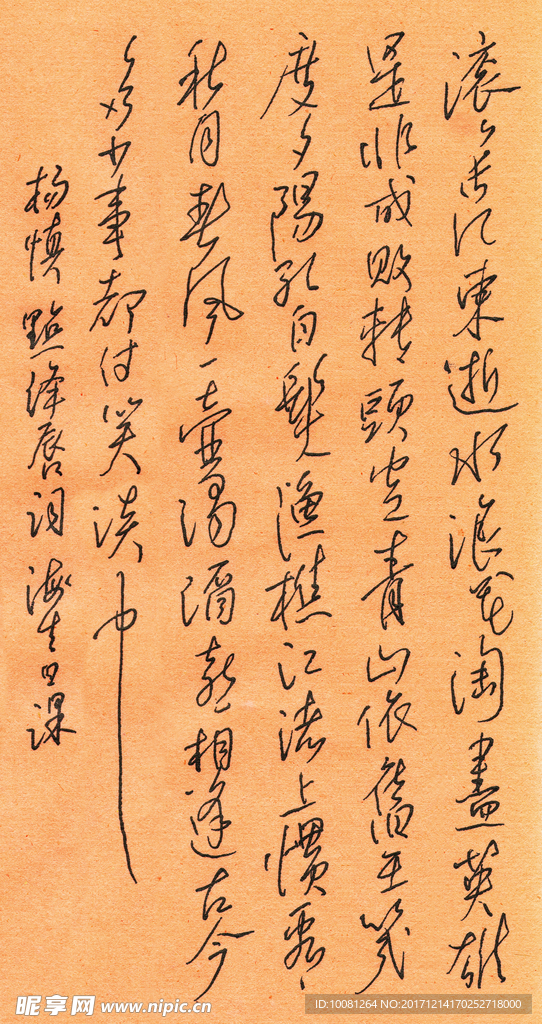 滚々长江東逝水浪花淘盡英雄
是非成敗转頭空青山依舊在笺
度夕陽红白髮漁樵江渚上慣看
秋月春風一壶濁酒喜相逢古今
多少事都付笑談中
杨慎點绛唇词 海生日课
昵享网 www.nipic.cn
ID:10081264 NO:20171214170252718000